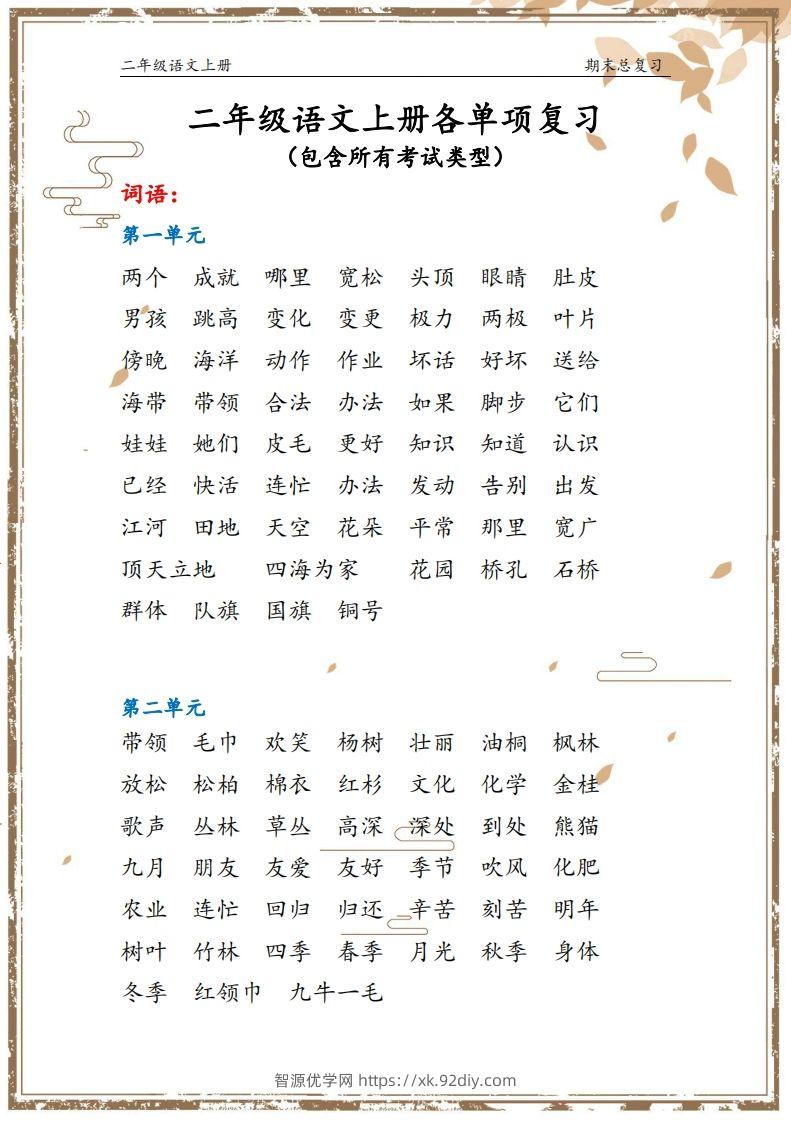 二年级语文上册 期末总复习
二年级语文上册各单项复习
（包含所有考试类型）
词语：
第一单元
两个 成就 哪里 宽松 头顶 眼睛 肚皮
男孩 跳高 变化 变更 极力 两极 叶片
傍晚 海洋 动作 作业 坏话 好坏 送给
海带 带领 合法 办法 如果 脚步 它们
娃娃 她们 皮毛 更好 知识 知道 认识
已经 快活 连忙 办法 发动 告别 出发
江河 田地 天空 花朵 平常 那里 宽广
顶天立地 四海为家 花园 桥孔 石桥
群体 队旗 国旗 铜号
第二单元
带领 毛巾 欢笑 杨树 壮丽 油桐 枫林
放松 松柏 棉衣 红杉 文化 化学 金桂
歌声 丛林 草丛 高深 深处 到处 熊猫
九月 朋友 友爱 友好 季节 吹风 化肥
农业 连忙 回归 归还 辛苦 刻苦 明年
树叶 竹林 四季 春季 月光 秋季 身体
冬季 红领巾 九牛一毛
智源优学网 https://xk.92diy.com